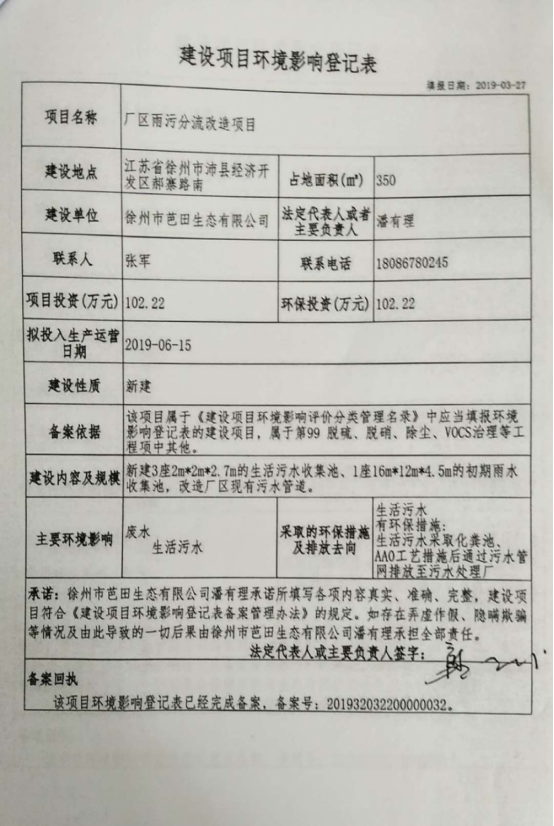 建设项目环境影响登记表
填报日期：2019-03-27
项目名称
厂区雨污分流改造项目
建设地点
江苏省徐州市沛县经济开
发区郝寨路南
占地面积(㎡)
350
建设单位
徐州市芭田生态有限公司
法定代表人或者
主要负责人
潘有理
联系人
张军
联系电话
18086780245
项目投资(万元)
102.22
环保投资(万元)
102.22
拟投入生产运营
日期
2019-06-15
建设性质
新建
备案依据
该项目属于《建设项目环境影响评价分类管理名录》中应当填报环境
影响登记表的建设项目，属于第99 脱硫、脱硝、除尘、VOCS治理等工
程项中其他。
建设内容及规模
新建3座2m*2m*2.7m的生活污水收集池、1座16m*12m*4.5m的初期雨水
收集池，改造厂区现有污水管道。
主要环境影响
废水
生活污水
采取的环保措施
及排放去向
生活污水
有环保措施：
生活污水采取化粪池、
AAO工艺措施后通过污水管
网排放至污水处理厂
承诺：徐州市芭田生态有限公司潘有理承诺所填写各项内容真实、准确、完整，建设项
目符合《建设项目环境影响登记表备案管理办法》的规定。如存在弄虚作假、隐瞒欺骗
等情况及由此导致的一切后果由徐州市芭田生态有限公司潘有理承担全部责任。
法定代表人或主要负责人签字：
备案回执
该项目环境影响登记表已经完成备案，备案号：201932032200000032。